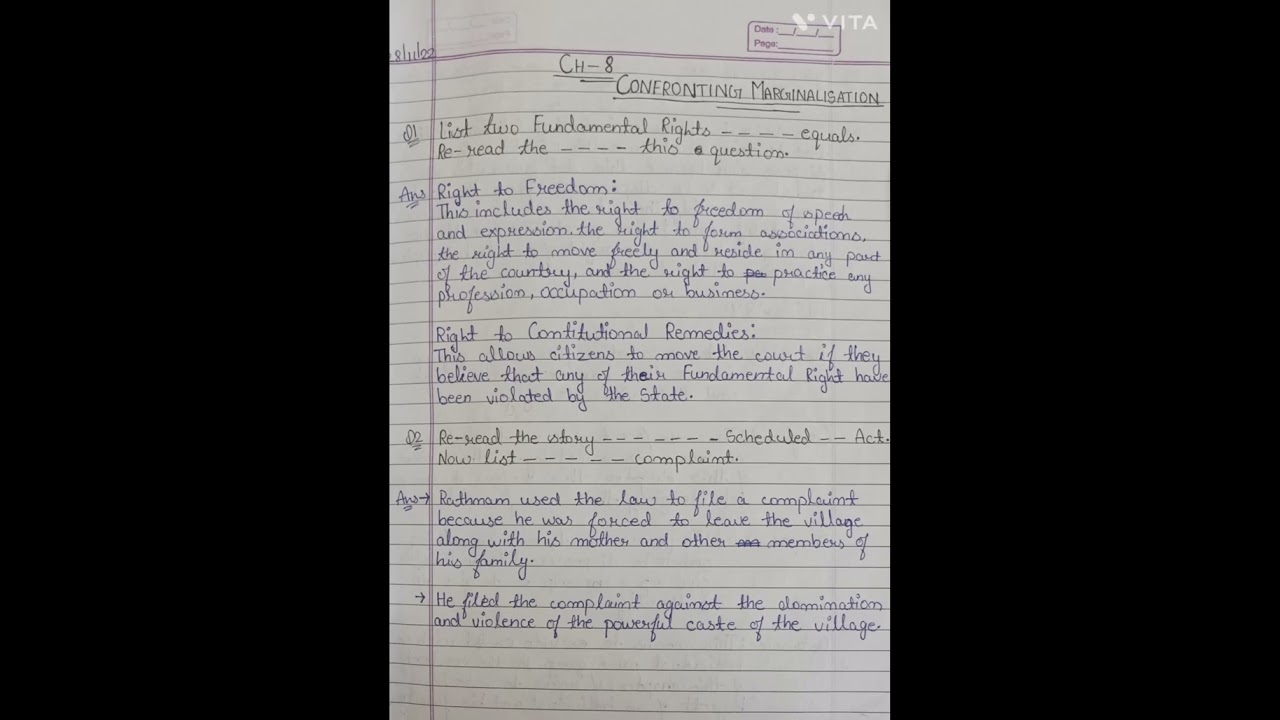 VITA
Date: __/__/__
Page: ______
8/11/22
CH-8
CONFRONTING MARGINALISATION
Q1 List two Fundamental Rights ---- equals.
Re-read the ---- this question.
Ans Right to Freedom:
This includes the right to freedom of speech
and expression. the right to form associations,
the right to move freely and reside in any part
of the country, and the right to practice any
profession, occupation or business.
Right to Contitutional Remedies:
This allows citizens to move the court if they
believe that any of their Fundamental Right have
been violated by the State.
Q2 Re-read the story --- ---- Scheduled -- Act.
Now list ----- complaint.
Ans→ Rathmam used the law to file a complaint
because he was forced to leave the village
along with his mother and other members of
his family.
→ He filed the complaint against the domination
and violence of the powerful caste of the village.